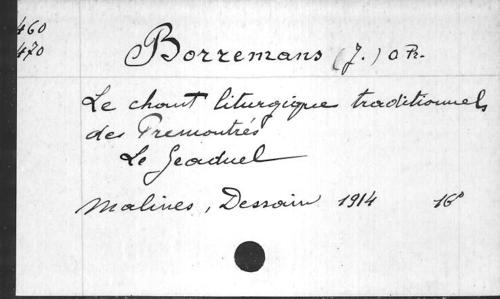 460
470
Borremans (J.) O Pr.
Le chant liturgique traditionnel
des Premontrés
Le Graduel
Malines, Dessain 1914 16°